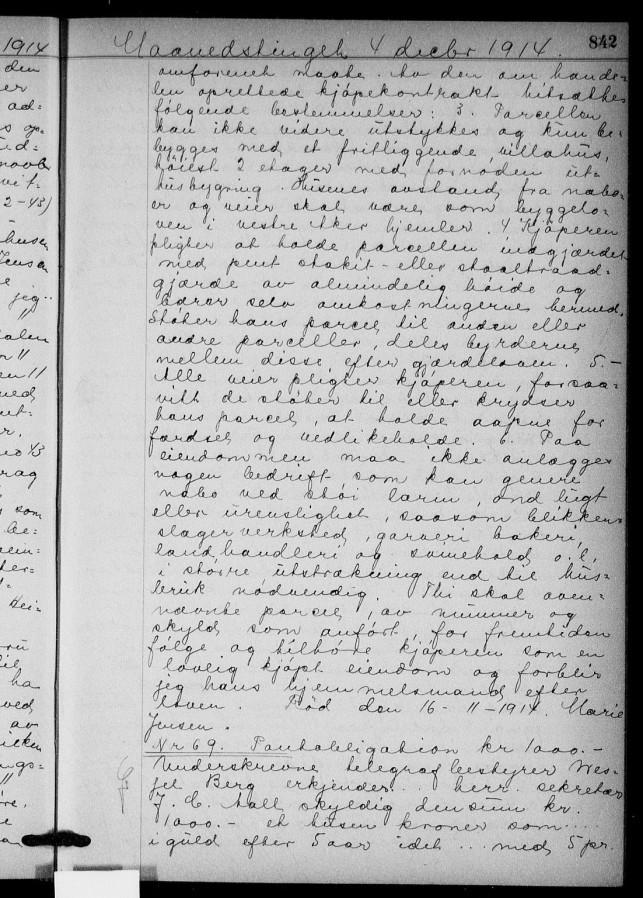 1914
Maanedstinget 4 decbr 1914.
842
den
omforenet maate. Av den om hande-
er
len oprettede kjøpekontrakt hitsættes
ad-
følgende bestemmelser: 3. Parcellen
kan ikke videre utstykkes og kun be-
bygges med et fritliggende villahus,
høiest 2 etager med fornøden ut-
vit-
husbygning. Husenes avstand fra nabo-
2-43)
er og veier skal være som byggelo-
ven i vestre Aker hjemler. 4 Kjøperen
pligter at holde parcellen indgjærdet
Jensen
med pent stakit- eller staaltraad-
gjærde av almindelig høide og
jeg
bærer selv omkostningerne hermed.
Støter hans parcel til anden eller
andre parceller, deles byrderne
mellem disse efter gjærdeloven. 5.-
Alle veier pligter kjøperen, forsaa-
ved
vitt de støter til eller krydser
hans parcel, at holde aapne for
færdsel og vedlikeholde. 6. Paa
43
eiendommen maa ikke anlægges
nogen bedrift som kan genere
nabo ved støi larm, ond lugt
som
eller urenslighet, saasom blikken-
be-
slagerverksted, garveri bakeri,
landhandleri og svinehold o.l.
i større utstrækning end til hus-
bruk nødvendig. Thi skal oven-
nævnte parcel, av nummer og
skyld som anført, for fremtiden
følge og tilhøre kjøperen som en
til
lovlig kjøpt eiendom og forblir
ha
jeg hans hjemmelsmand efter
ved
loven. den 16-11-1914. Marie
av
Jensen.
Nr 69. Pantobligation kr 1000.-
Underskrevne telegrafbestyrer Wes-
sel Berg erkjender.. herr sekretær
J. C. skyldig den sum kr.
1000.- et tusen kroner som....
i guld efter 5 aar idet ... med 5 pr.